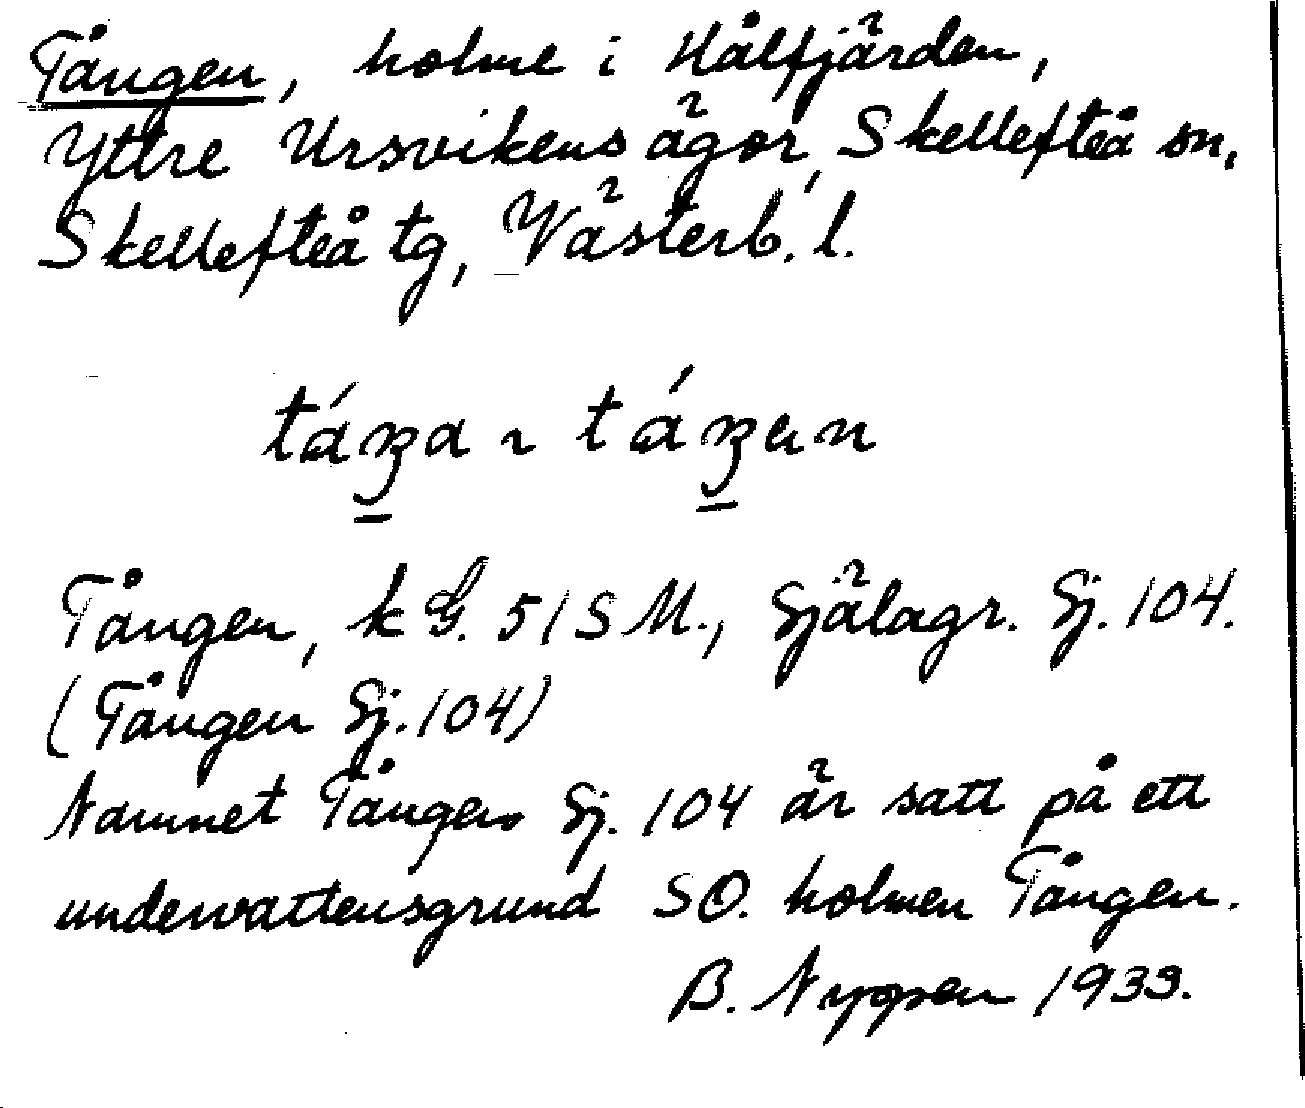 Tången, holme i Kålfjärden,
Yttre Ursvikens ägor, Skellefteå sn,
Skellefteå tg, Västerb. l.
Tången, k G. 51 S M., Sjålagr. Sj. 104.
(Tången Sj. 104)
Namnet Tången Sj. 104 är satt på ett
undervattensgrund SO. holmen Tången.
B. 1933.